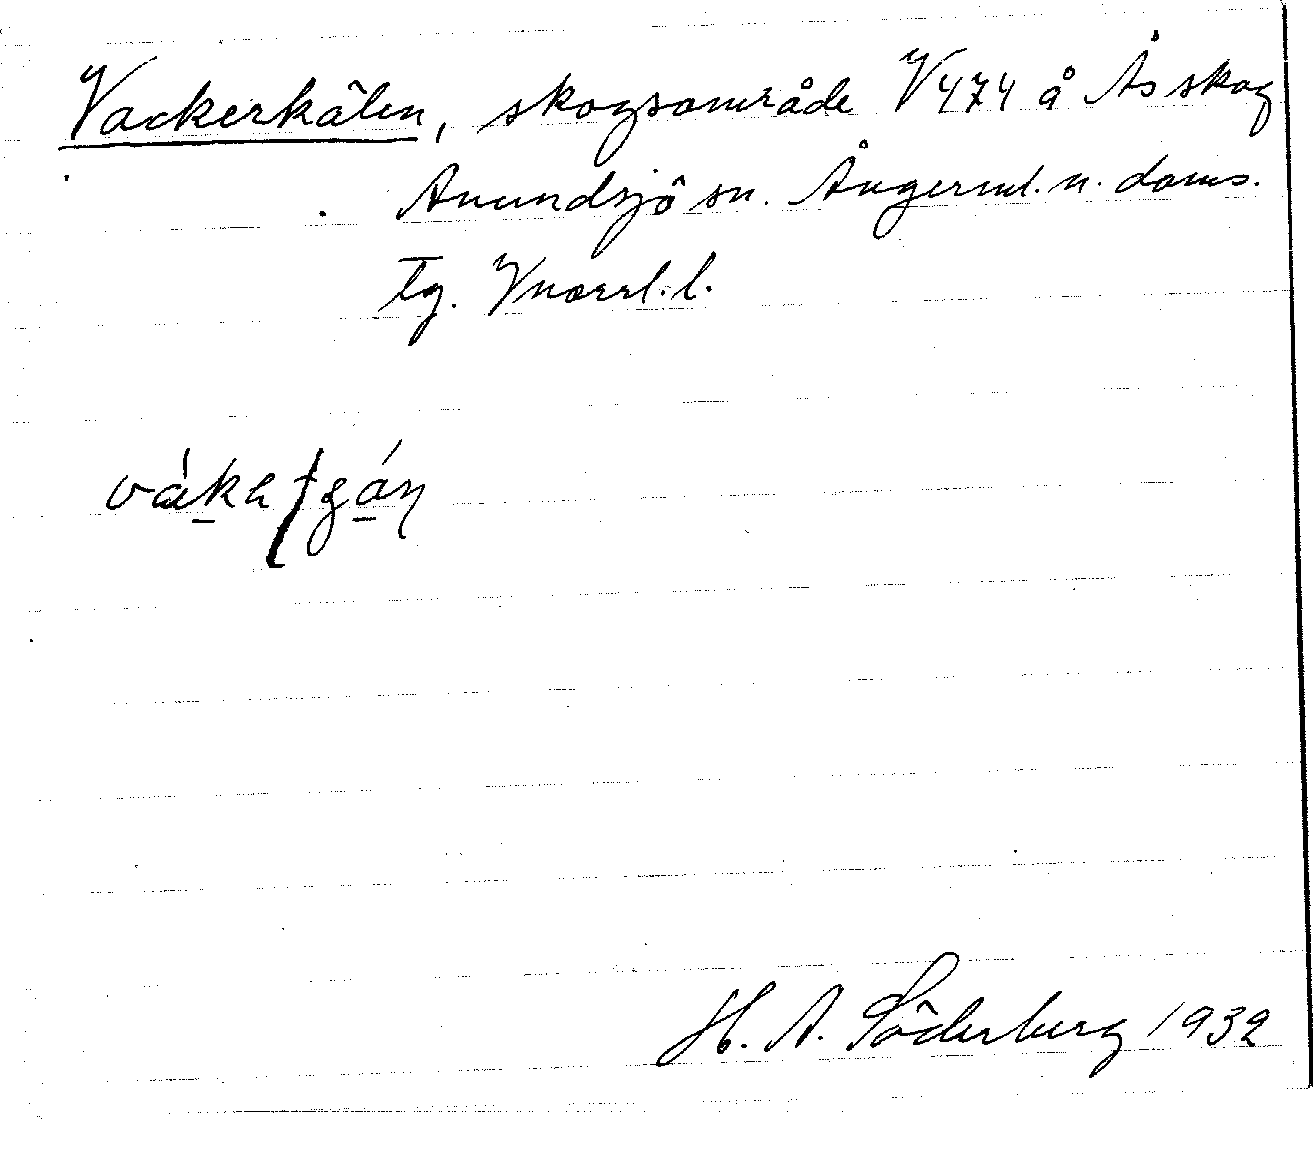 Vackerkålen, skogsområde V474 å Ås skog
Anundsjö sn. Ångerml. n. doms.
tg. Vnorrl. l.
H. A. Söderberg 1932